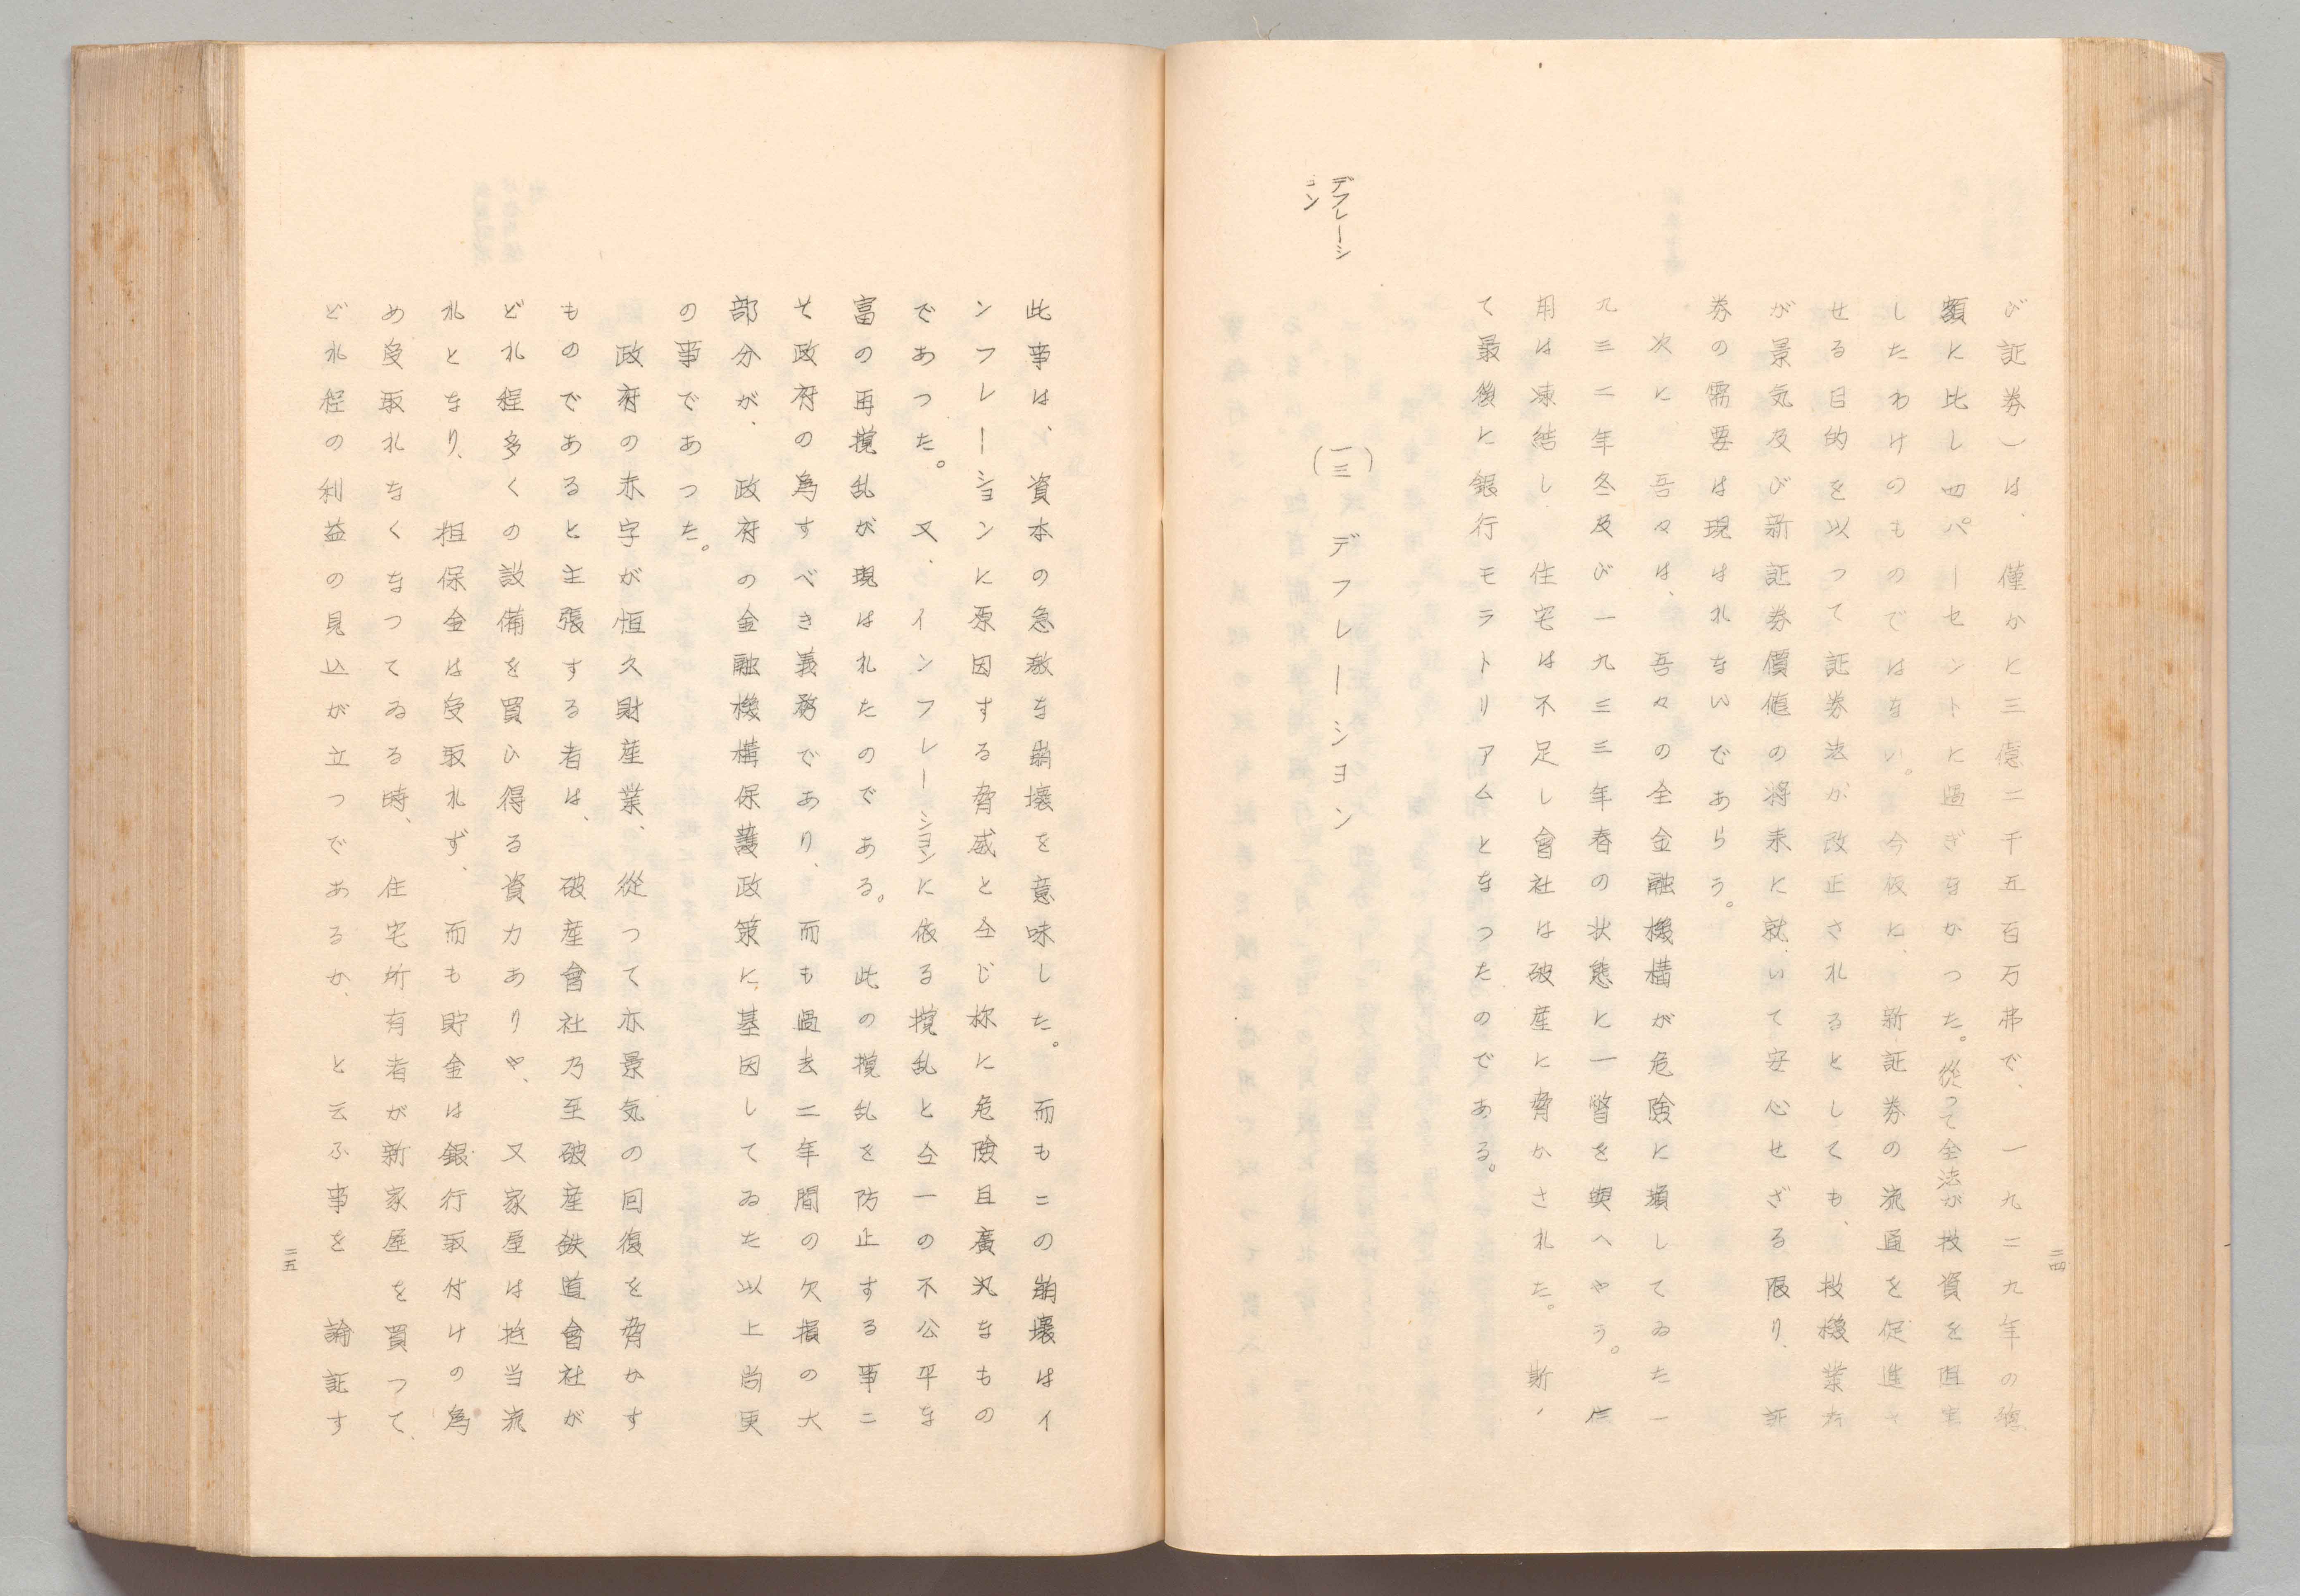 び証券)は、僅かに三億二千五百万弗で、一九二九年の總
額に比し四パーセントに過ぎなかつた。從つて仝法が投資を阻害
したわけのものではない。今仮に、新証券の流通を促進さ
せる目的を以つて証券法が改正されるとしても、投機業者
が景気及び新証券價値の将来に就いて安心せざる限り、証
券の需要は現はれないであらう。
次に吾々は、吾々の全金融機構が危険に瀕してゐた一
九三二年冬及び一九三三年春の状態に一瞥を與へやう。信
用は凍結し住宅は不足し會社は破産に脅かされた。斯く
て最後に銀行モラトリアムとなつたのである。
デフレーシ
ヨン
(一三) デフレーシヨン
二四
此事は、資本の急激な崩壊を意味した。而もこの崩壊はイ
ンフレーションに原因する脅威と仝じ称に危險且廣汎なもの
であつた。又、インフレーションに依る撹乱と仝一の不公平な
富の再撹乱が現はれたのである。此の撹乱を防止する事こ
そ政府の為すべき義務であり、而も過去二年間の欠損の大
部分が、政府の金融機構保護政策に基因してゐた以上尚更
の事であつた。
政府の赤字が恒久財産業、從つて亦景気の回復を脅かす
ものであると主張する者は、破産會社乃至破産鉄道會社が
どれ程多くの設備を買ひ得る資力ありや、又家屋は抵当流
れとなり、担保金は受取れず、而も貯金は銀行取付けの為
め受取れなくなつてゐる時、住宅所有者が新家屋を買つて、
どれ程の利益の見込が立つであるか、と云ふ事を論証す
二五